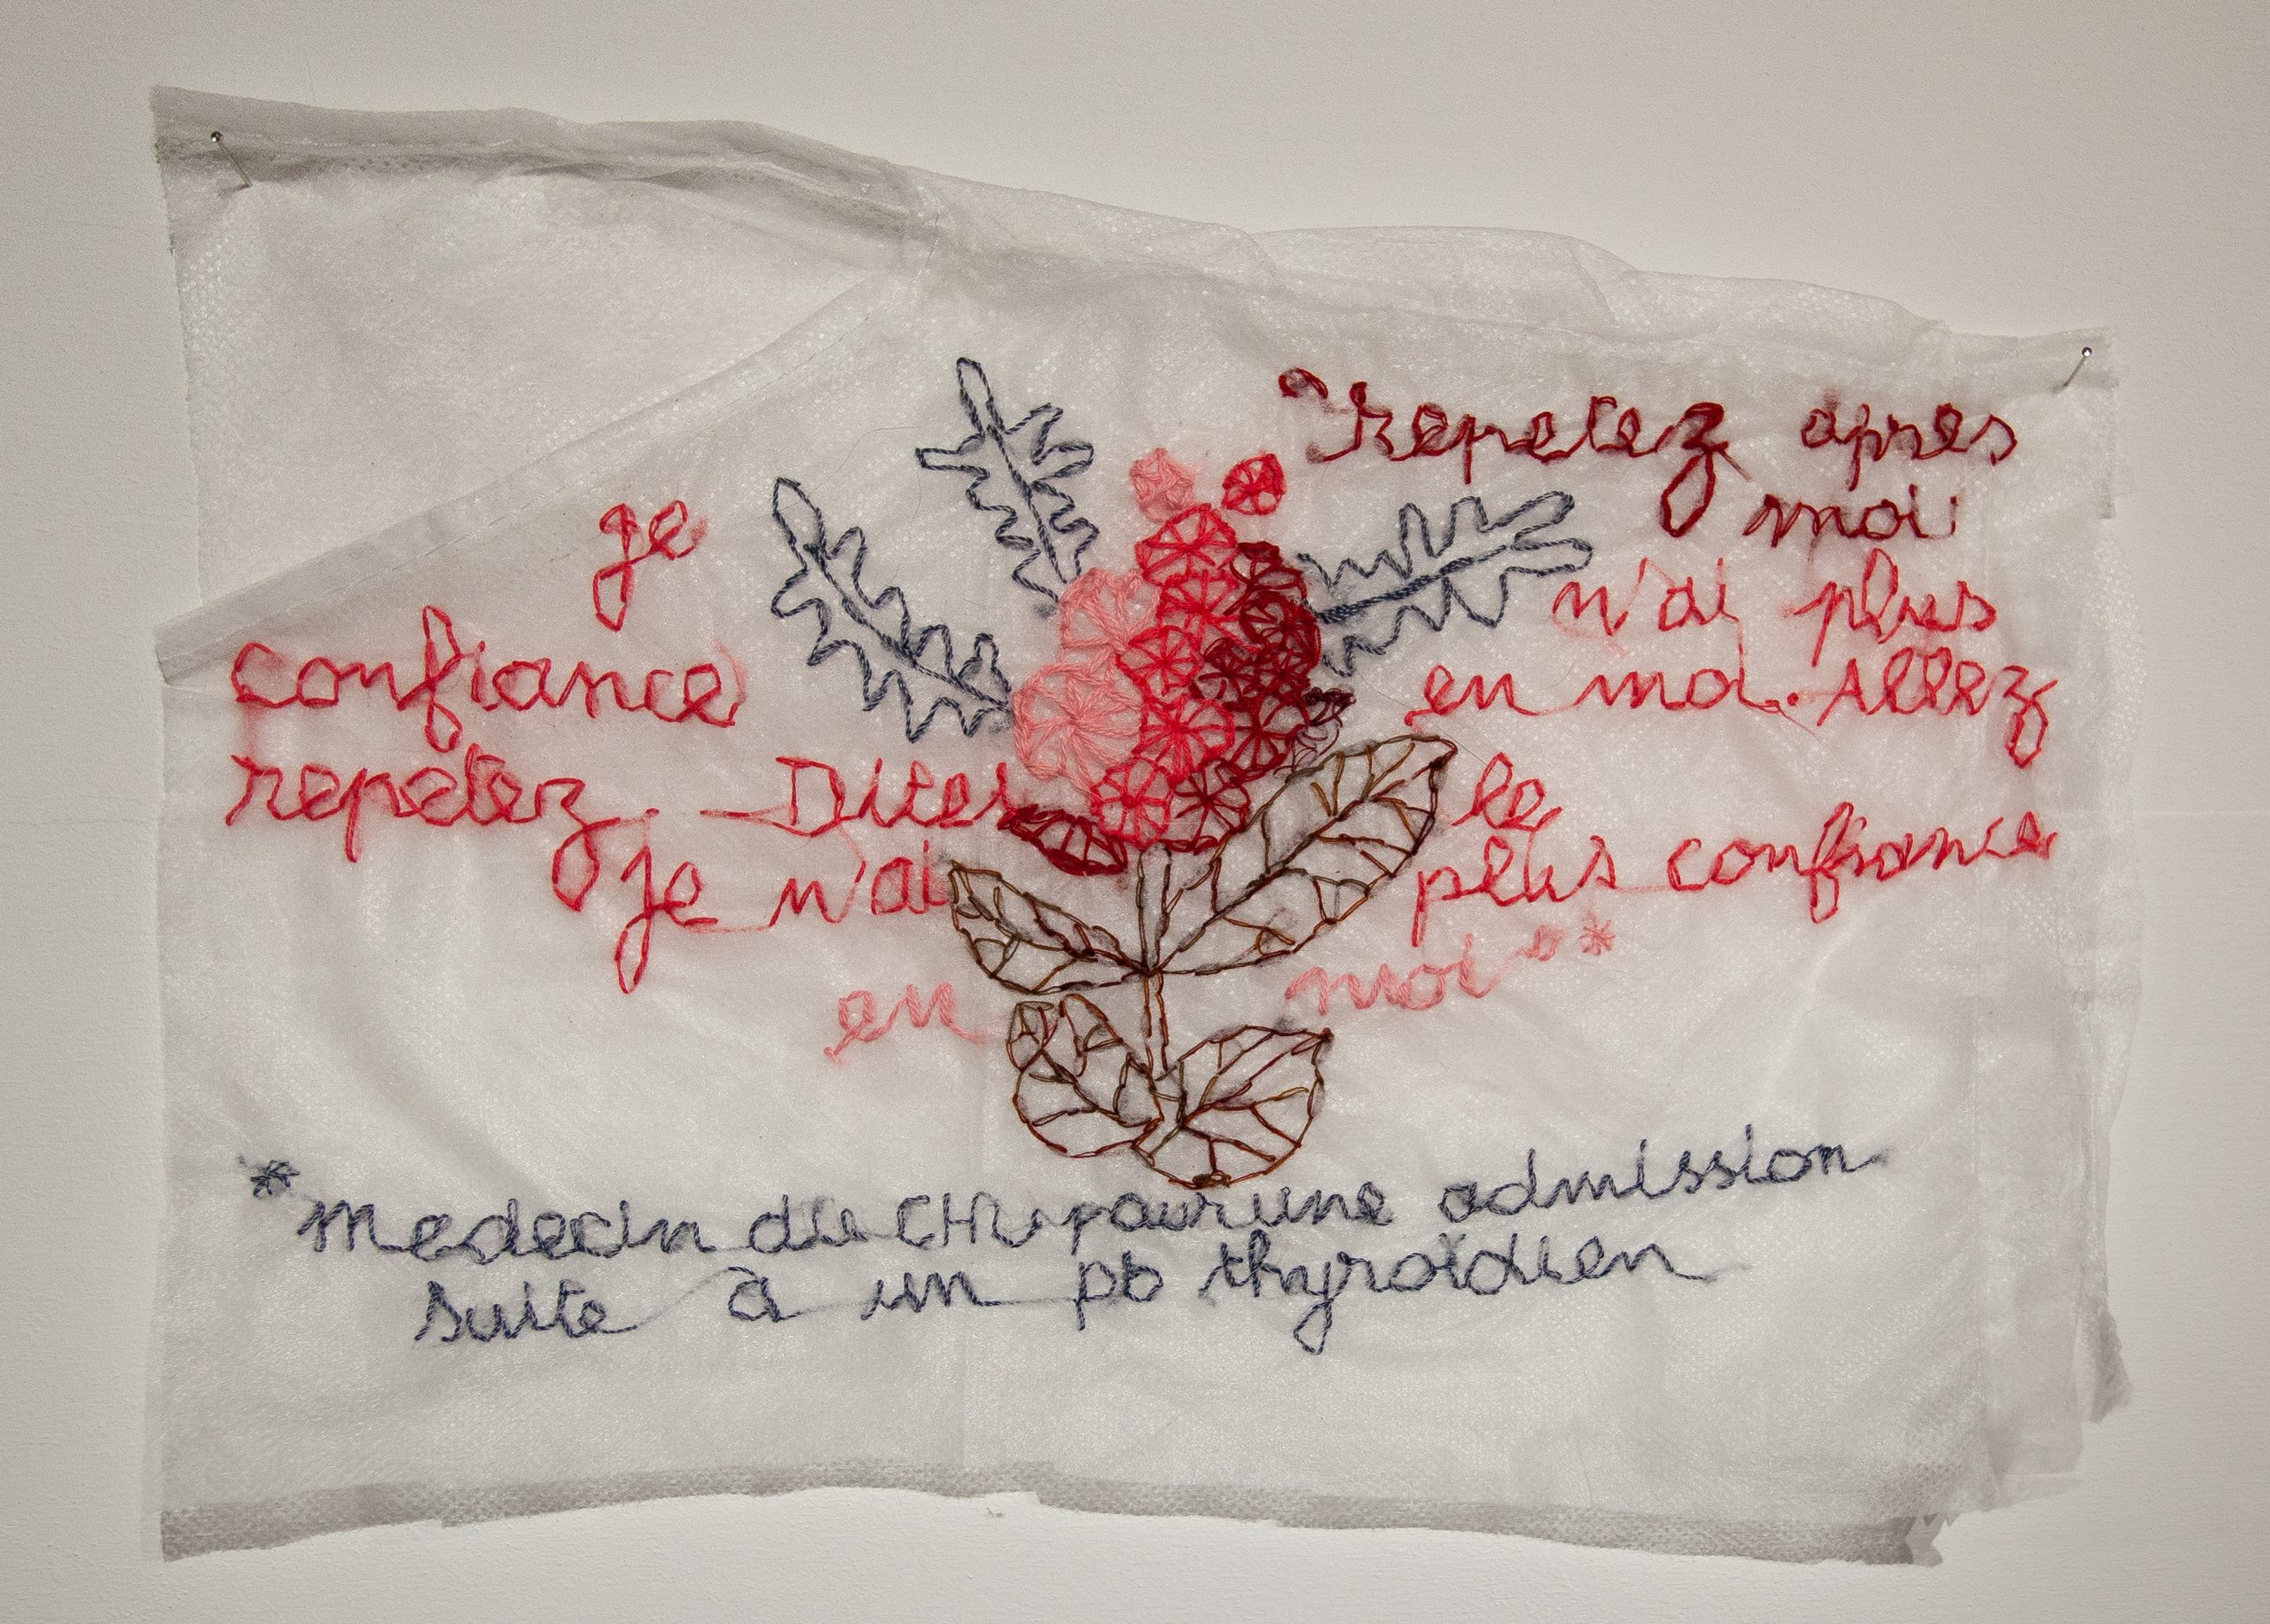 "Repetez apres
moi
je n'ai plus
confiance en moi. Allez
repetez. Dites le
je n'ai plus confiance
en moi"*
*Medecin du CHU pour une admission
suite à un pb thyroïdien